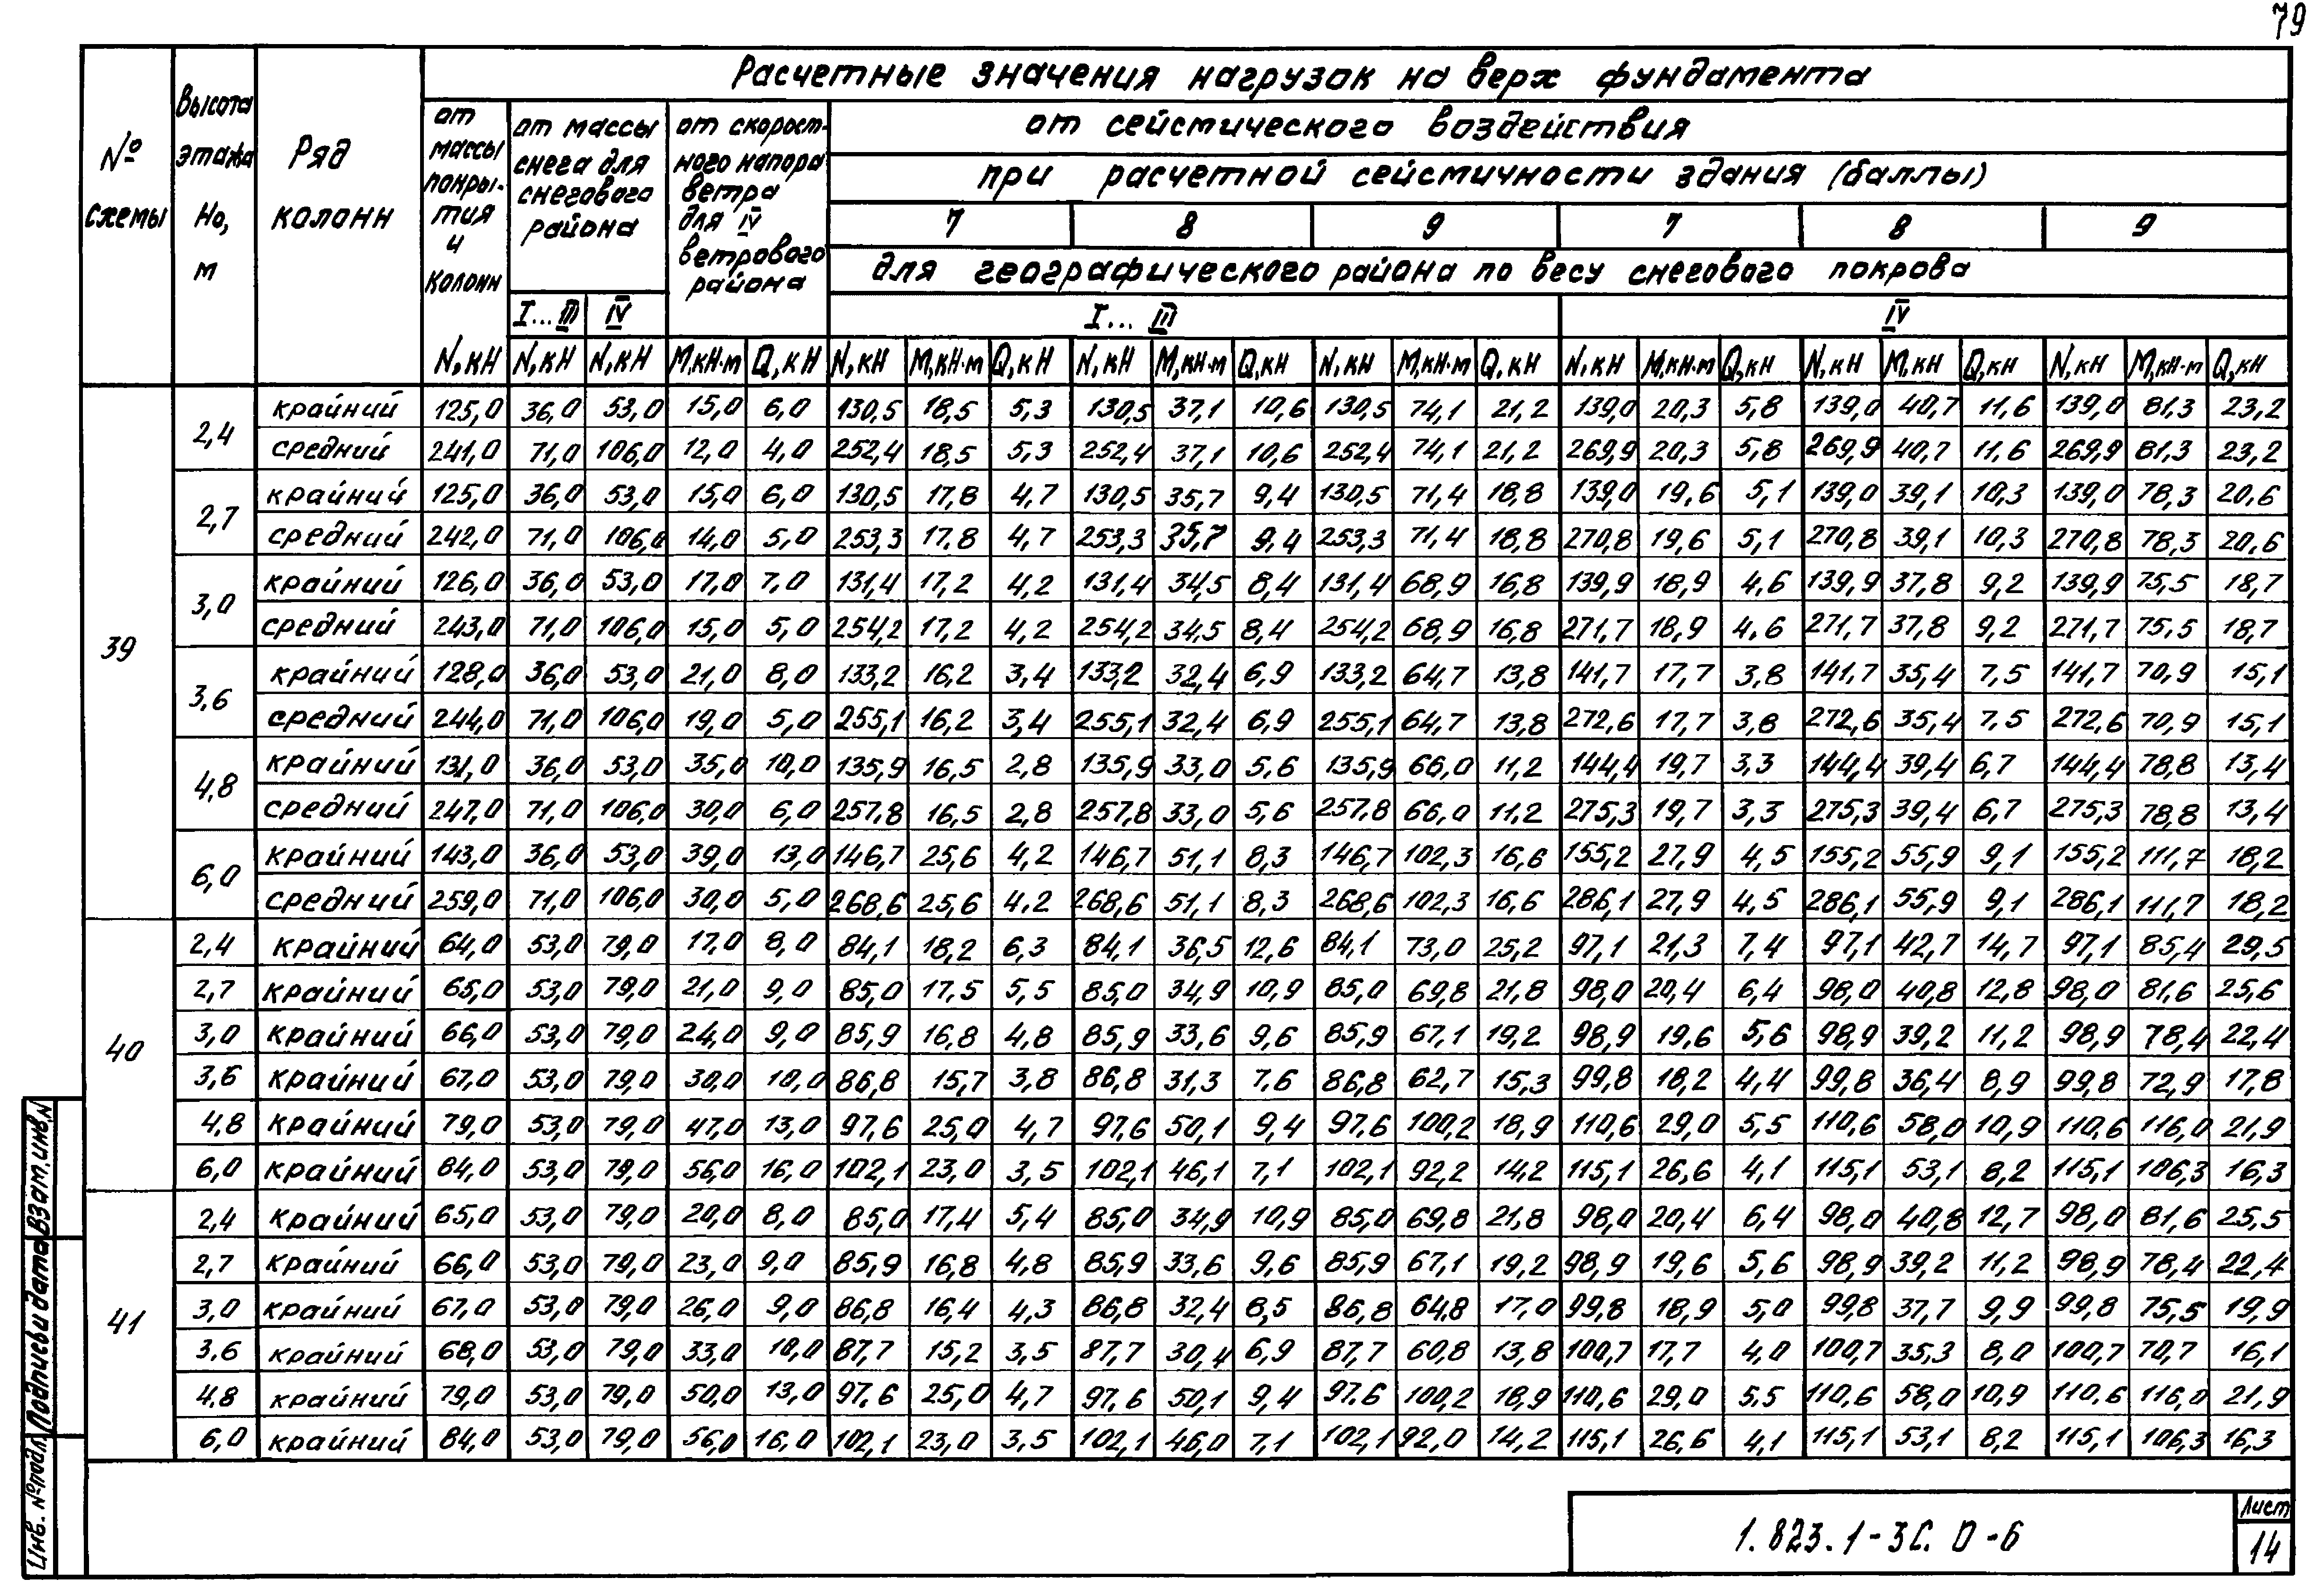 79
Расчетные значения нагрузок на верх фундамента
№ схемы
Высота этажа Hо, м
Ряд колонн
от массы покры-тия и колонн
от массы снега для снегового района
от скорост-ного напора ветра для IV ветрового района
от сейсмического воздействия
при расчетной сейсмичности здания (баллы)
7 8 9 7 8 9
для географического района по весу снегового покрова
I...III IV I...III IV
N,кН N,кН N,кН М,кН·м Q,кН N,кН М,кН·м Q,кН N,кН М,кН·м Q,кН N,кН М,кН·м Q,кН N,кН М,кН·м Q,кН N,кН М,кН Q,кН N,кН М,кН·м Q,кН
39
2,4 крайний 125,0 36,0 53,0 15,0 6,0 130,5 18,5 5,3 130,5 37,1 10,6 130,5 74,1 21,2 139,0 20,3 5,8 139,0 40,7 11,6 139,0 81,3 23,2
средний 241,0 71,0 106,0 12,0 4,0 252,4 18,5 5,3 252,4 37,1 10,6 252,4 74,1 21,2 269,9 20,3 5,8 269,9 40,7 11,6 269,9 81,3 23,2
2,7 крайний 125,0 36,0 53,0 15,0 6,0 130,5 17,8 4,7 130,5 35,7 9,4 130,5 71,4 18,8 139,0 19,6 5,1 139,0 39,1 10,3 139,0 78,3 20,6
средний 242,0 71,0 106,0 14,0 5,0 253,3 17,8 4,7 253,3 35,7 9,4 253,3 71,4 18,8 270,8 19,6 5,1 270,8 39,1 10,3 270,8 78,3 20,6
3,0 крайний 126,0 36,0 53,0 17,0 7,0 131,4 17,2 4,2 131,4 34,5 8,4 131,4 68,9 16,8 139,9 18,9 4,6 139,9 37,8 9,2 139,9 75,5 18,7
средний 243,0 71,0 106,0 15,0 5,0 254,2 17,2 4,2 254,2 34,5 8,4 254,2 68,9 16,8 271,7 18,9 4,6 271,7 37,8 9,2 271,7 75,5 18,7
3,6 крайний 128,0 36,0 53,0 21,0 8,0 133,2 16,2 3,4 133,2 32,4 6,9 133,2 64,7 13,8 141,7 17,7 3,8 141,7 35,4 7,5 141,7 70,9 15,1
средний 244,0 71,0 106,0 19,0 5,0 255,1 16,2 3,4 255,1 32,4 6,9 255,1 64,7 13,8 272,6 17,7 3,8 272,6 35,4 7,5 272,6 70,9 15,1
4,8 крайний 131,0 36,0 53,0 35,0 10,0 135,9 16,5 2,8 135,9 33,0 5,6 135,9 66,0 11,2 144,4 19,7 3,3 144,4 39,4 6,7 144,4 78,8 13,4
средний 247,0 71,0 106,0 30,0 6,0 257,8 16,5 2,8 257,8 33,0 5,6 257,8 66,0 11,2 275,3 19,7 3,3 275,3 39,4 6,7 275,3 78,8 13,4
6,0 крайний 143,0 36,0 53,0 39,0 13,0 146,7 25,6 4,2 146,7 51,1 8,3 146,7 102,3 16,6 155,2 27,9 4,5 155,2 55,9 9,1 155,2 111,7 18,2
средний 259,0 71,0 106,0 30,0 5,0 268,6 25,6 4,2 268,6 51,1 8,3 268,6 102,3 16,6 286,1 27,9 4,5 286,1 55,9 9,1 286,1 111,7 18,2
40
2,4 крайний 64,0 53,0 79,0 17,0 8,0 84,1 18,2 6,3 84,1 36,5 12,6 84,1 73,0 25,2 97,1 21,3 7,4 97,1 42,7 14,7 97,1 85,4 29,5
2,7 крайний 65,0 53,0 79,0 21,0 9,0 85,0 17,5 5,5 85,0 34,9 10,9 85,0 69,8 21,8 98,0 20,4 6,4 98,0 40,8 12,8 98,0 81,6 25,6
3,0 крайний 66,0 53,0 79,0 24,0 9,0 85,9 16,8 4,8 85,9 33,6 9,6 85,9 67,1 19,2 98,9 19,6 5,6 98,9 39,2 11,2 98,9 78,4 22,4
3,6 крайний 67,0 53,0 79,0 30,0 10,0 86,8 15,7 3,8 86,8 31,3 7,6 86,8 62,7 15,3 99,8 18,2 4,4 99,8 36,4 8,9 99,8 72,9 17,8
4,8 крайний 79,0 53,0 79,0 47,0 13,0 97,6 25,0 4,7 97,6 50,1 9,4 97,6 100,2 18,9 110,6 29,0 5,5 110,6 58,0 10,9 110,6 116,0 21,9
6,0 крайний 84,0 53,0 79,0 56,0 16,0 102,1 23,0 3,5 102,1 46,1 7,1 102,1 92,2 14,2 115,1 26,6 4,1 115,1 53,1 8,2 115,1 106,3 16,3
41
2,4 крайний 65,0 53,0 79,0 20,0 8,0 85,0 17,4 5,4 85,0 34,9 10,9 85,0 69,8 21,8 98,0 20,4 6,4 98,0 40,8 12,7 98,0 81,6 25,5
2,7 крайний 66,0 53,0 79,0 23,0 9,0 85,9 16,8 4,8 85,9 33,6 9,6 85,9 67,1 19,2 98,9 19,6 5,6 98,9 39,2 11,2 98,9 78,4 22,4
3,0 крайний 67,0 53,0 79,0 26,0 9,0 86,8 16,4 4,3 86,8 32,4 8,5 86,8 64,8 17,0 99,8 18,9 5,0 99,8 37,7 9,9 99,8 75,5 19,9
3,6 крайний 68,0 53,0 79,0 33,0 10,0 87,7 15,2 3,5 87,7 30,4 6,9 87,7 60,8 13,8 100,7 17,7 4,0 100,7 35,3 8,0 100,7 70,7 16,1
4,8 крайний 79,0 53,0 79,0 50,0 13,0 97,6 25,0 4,7 97,6 50,1 9,4 97,6 100,2 18,9 110,6 29,0 5,5 110,6 58,0 10,9 110,6 116,0 21,9
6,0 крайний 84,0 53,0 79,0 56,0 16,0 102,1 23,0 3,5 102,1 46,0 7,1 102,1 92,0 14,2 115,1 26,6 4,1 115,1 53,1 8,2 115,1 106,3 16,3
Инв. № подл. Подпись и дата Взам.инв.N
1.823.1-3С. 0-6
Лист
14